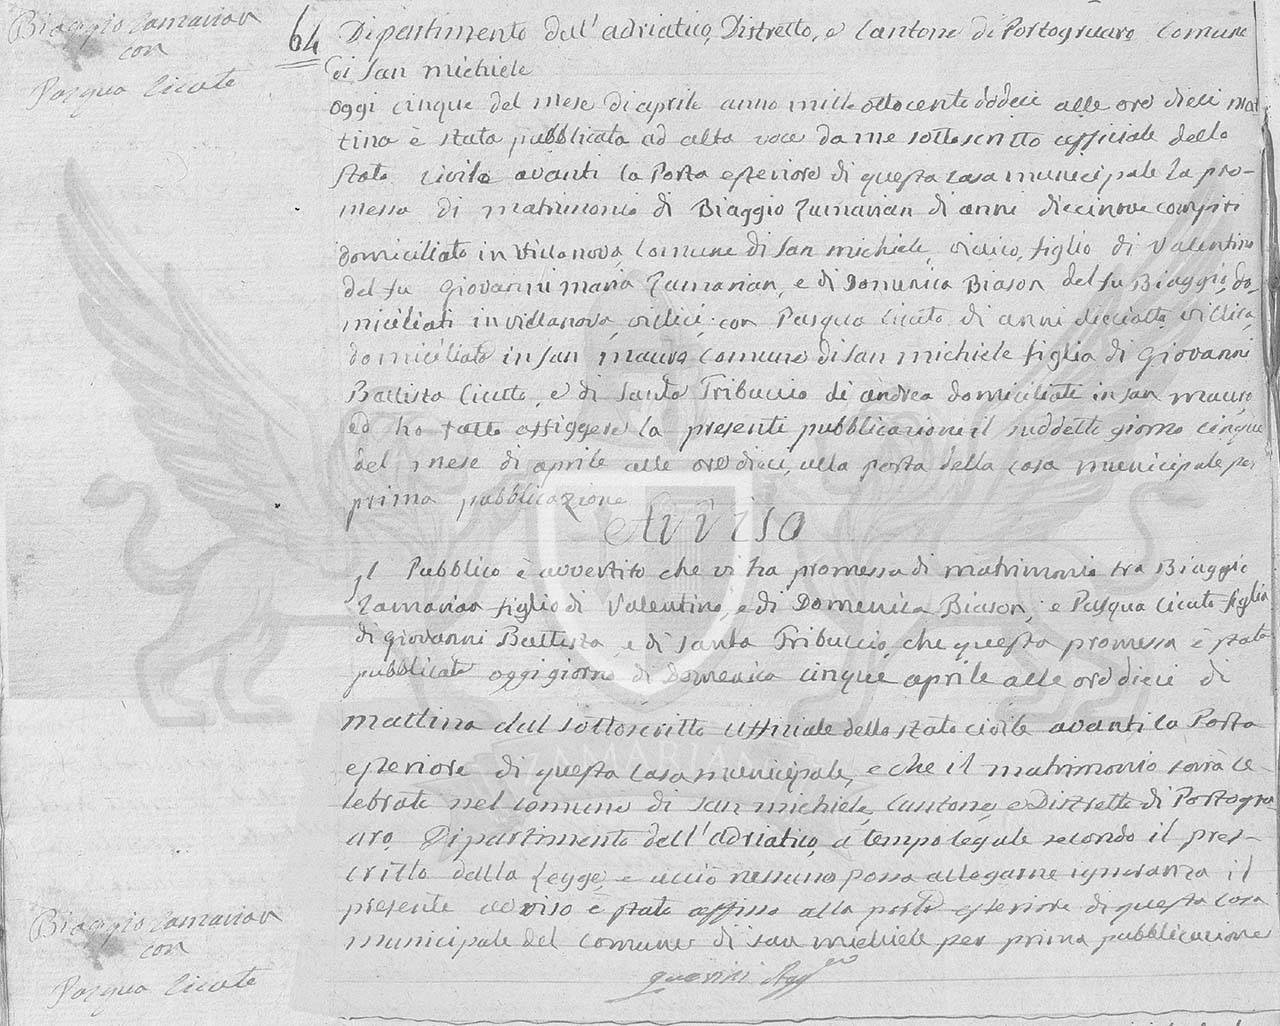 Biaggio Zamarian
con
Pasqua Cicuto
64
Dipartimento dell'adriatico, Distretto, e Cantone di Portogruaro Comune
di San Michiele
oggi cinque del mese di aprile anno mille ottocento dodeci alle ore dieci mat
tina è stata pubblicata ad alta voce da me sottoscritto officiale dello
stato civile avanti la Porta esteriore di questa casa municipale la pro-
messa di matrimonio di Biaggio Zamarian di anni diecinove compiti
domiciliato in Villanova, Comune di San michiele, villico, figlio di Valentino
del fu Giovanni maria Zamarian, e di Domenica Biason del fu Biaggio do-
miciliati in villanova, villici, con Pasqua Cicuto di anni dieciotto villica,
domiciliata in San mauro comune di San michiele figlia di Giovanni
Battista Cicuto, e di Santa Tribuccio di andrea domiciliati in san mauro,
ed ho fatto affiggere la presente pubblicazione il suddetto giorno cinque
del mese di aprile alle ore dieci, alla porta della casa municipale per
prima pubblicazione
Avviso
Il Pubblico è avvertito che vi ha promessa di matrimonio tra Biaggio
Zamarian figlio di Valentino, e di Domenica Biason, e Pasqua Cicuto figlia
di Giovanni Battista e di Santa Tribuccio, che questa promessa è stata
pubblicata oggi giorno di Domenica cinque aprile alle ore dieci di
mattina dal sottoscritto uffiziale dello stato civile avanti la Porta
esteriore di questa casa municipale, e che il matrimonio sarà ce
lebrato nel comune di San michiele, Cantone, e Distretto di Portogru
aro, Dipartimento dell'adriatico, a tempo legale secondo il pres-
critto dalla Legge, e acciò nessuno possa allegarne ignoranza il
presente avviso è stato affisso alla porta esteriore di questa casa
municipale del comune di San michiele per prima pubblicazione
Biaggio Zamarian
con
Pasqua Cicuto
ZAMARIAN